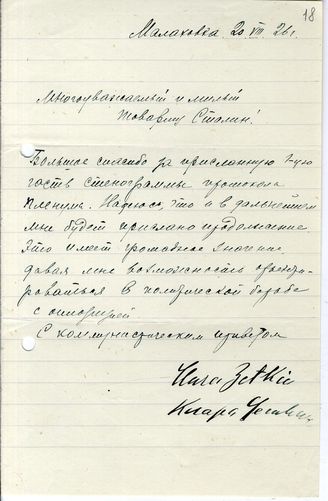 18
Малаховка 20 VII. 26 г.
Многоуважаемый и милый
товарищ Сталин!
Большое спасибо за присланную 1-ую
часть стенограммы протокола
Пленума. Надеюсь, что и в дальнейшем
мне будет прислано продолжение
Это имеет громадное значение
давая мне возможность ориенти-
роваться в политической борьбе
с оппозицией
С коммунистическим приветом
Clara Zetkin
Клара Цеткин